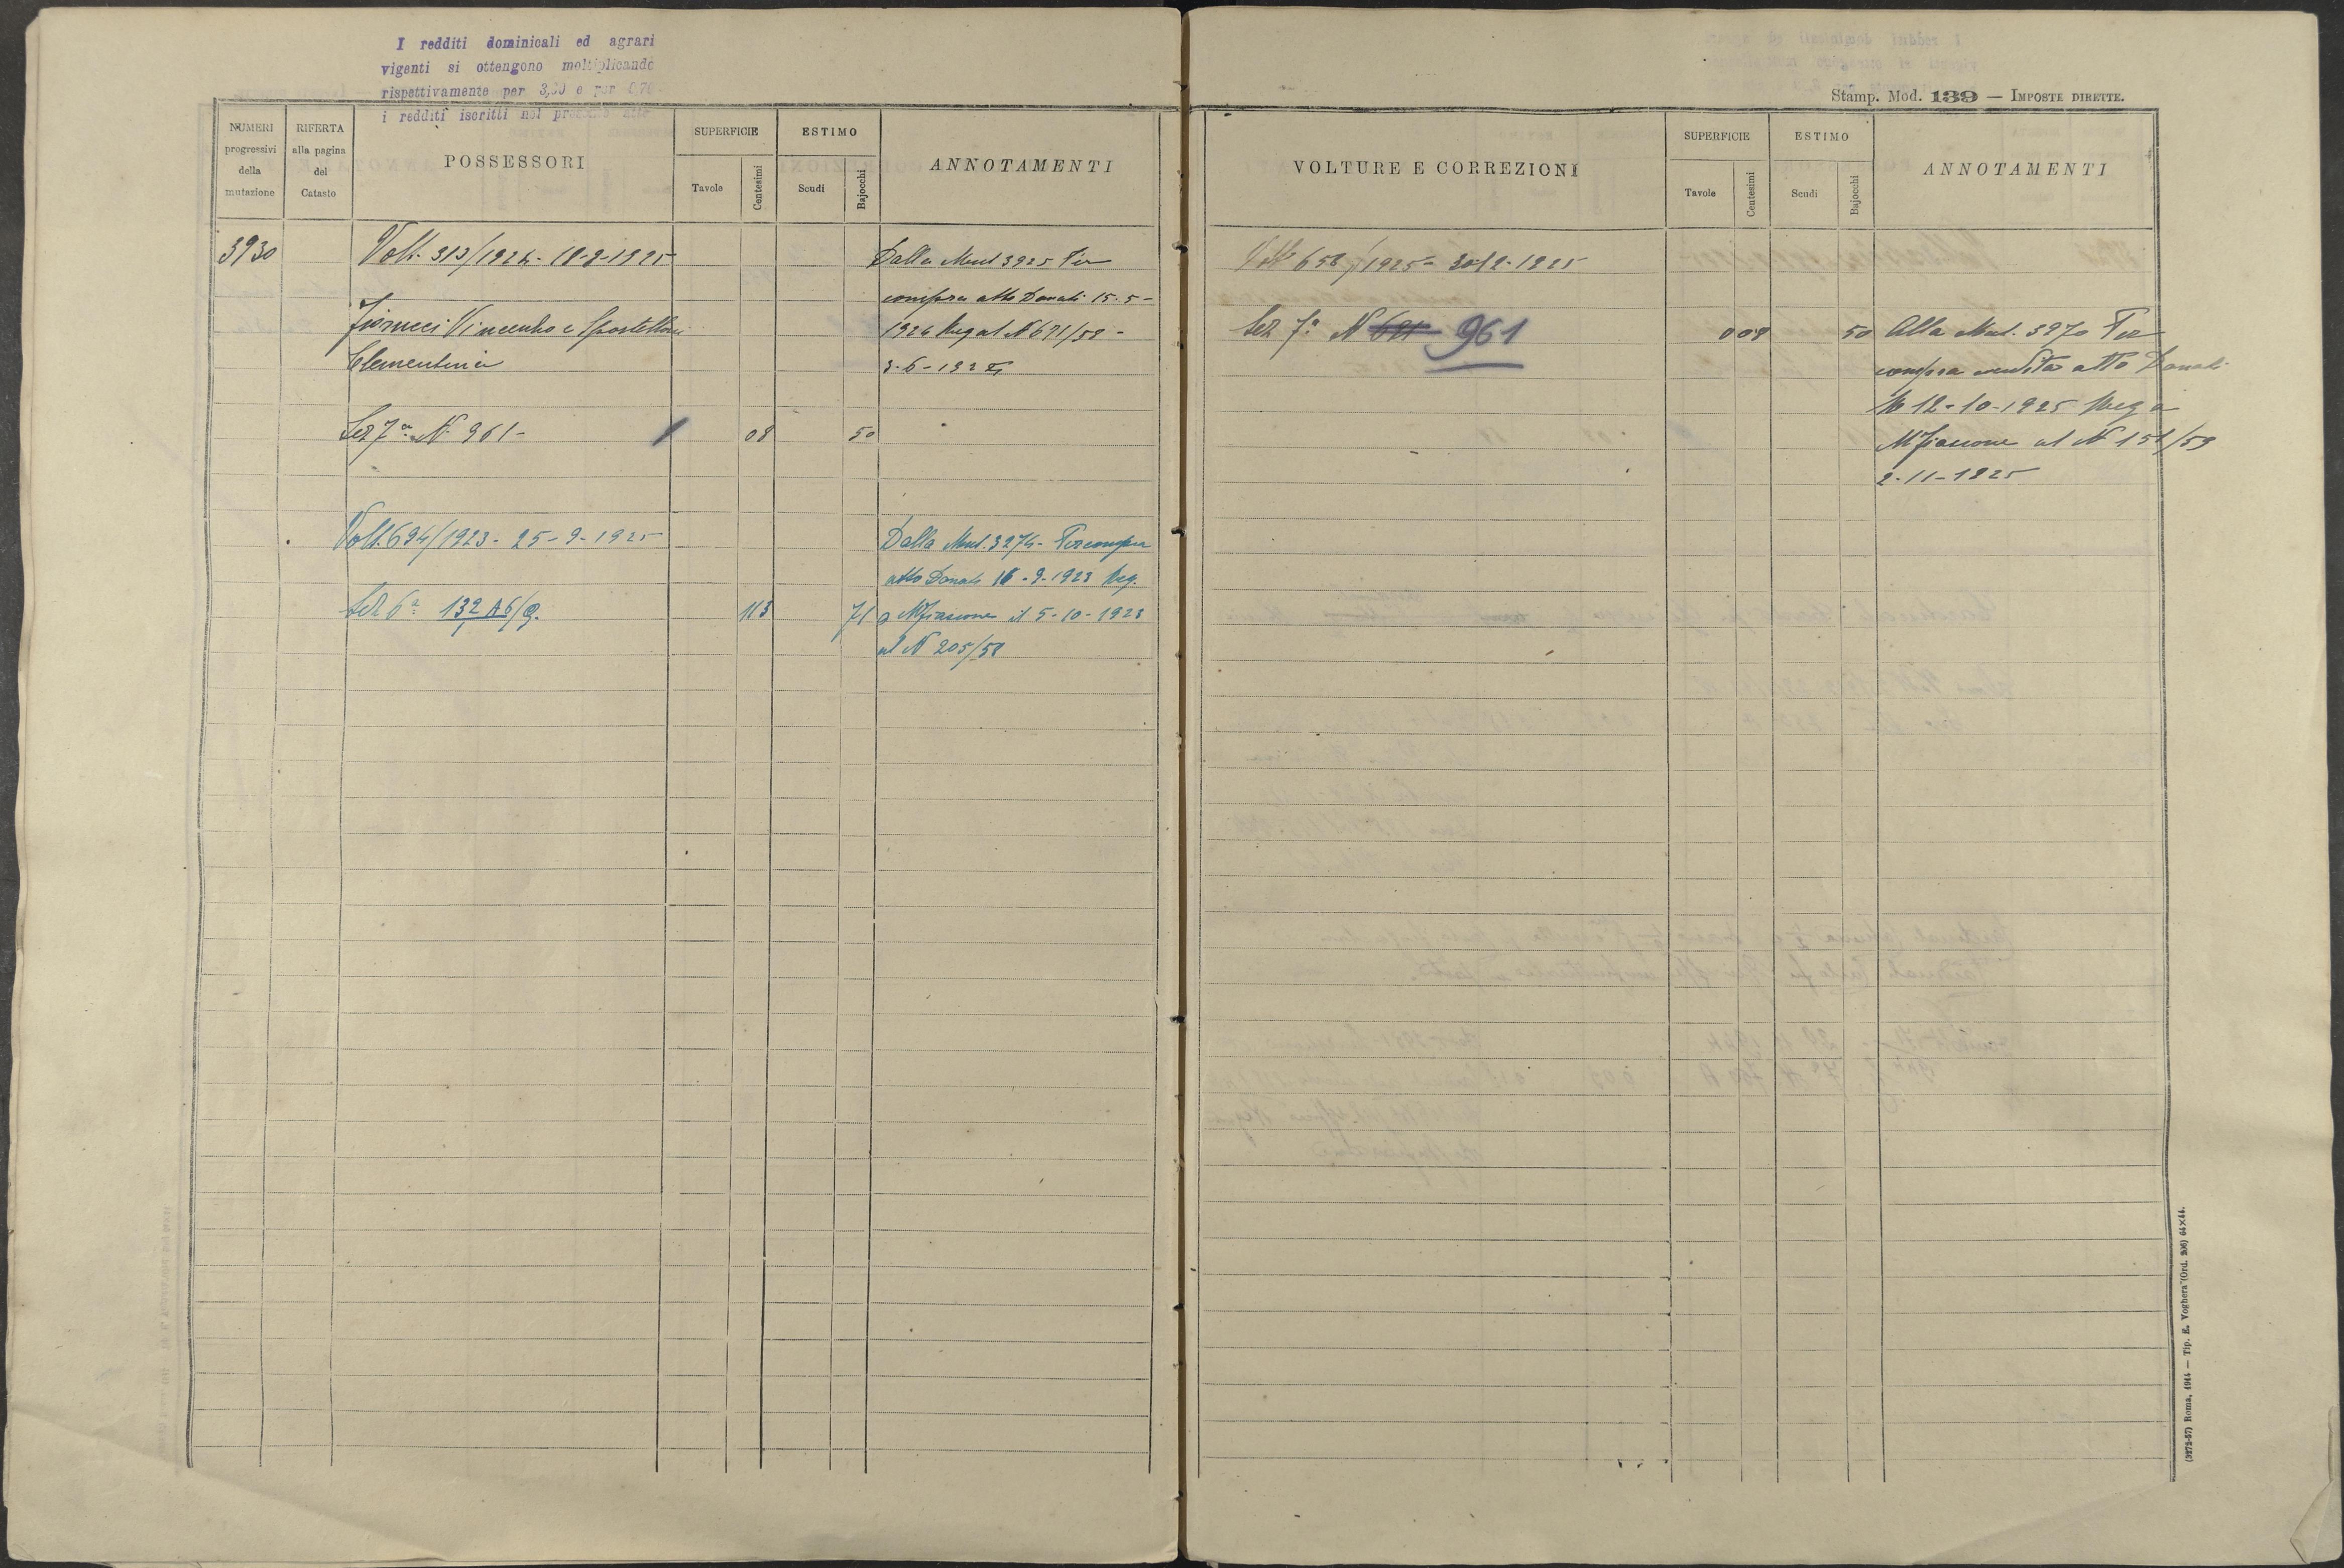 I redditi dominicali ed agrari
vigenti si ottengono moltiplicando
rispettivamente per 3,30 e per 0,70
i redditi iscritti nel presente
NUMERI progressivi della mutazione
RIFERTA alla pagina del Catasto
POSSESSORI
SUPERFICIE
Tavole
Centesimi
ESTIMO
Scudi
Bajocchi
ANNOTAMENTI
3930
Volt. 313/1924 - 18-9-1925
Fiorucci Vincenzo e
Clementina
Sez 7ª N 961 -
08
50
Dalla Mut 3925 Per
compra atto Donati 15-5-
1924 Reg al N 671/58 -
3-6-192
Volt. 694/1923 - 25-9-1925
Sez 6ª 132
113
71
Dalla Mut. 3274 - Per compra
atto Donati 16-9-1923 Reg.
a Mfiascone il 5-10-1923
al N 205/58
Stamp. Mod. 139 — IMPOSTE DIRETTE.
VOLTURE E CORREZIONI
SUPERFICIE
Tavole
Centesimi
ESTIMO
Scudi
Bajocchi
ANNOTAMENTI
Volt 658/1925 - 30-12-1925
Sez 7ª N 961
0 08
50
Alla Mut. 3970 Per
compra vendita atto Donati
12-10-1925 Reg a
Mfiascone al N 151/59
2-11-1925
(3272-57) Roma, 1914 — Tip. E. Voghera (Ord. 206) 64×44.